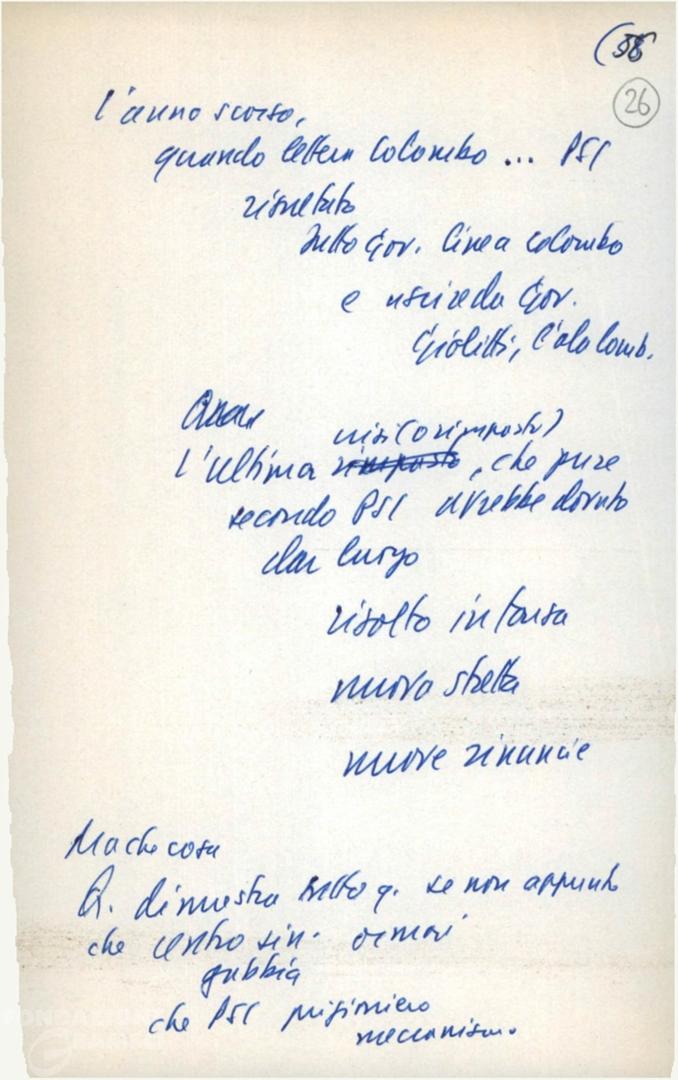 (58
26
l'anno scorso,
quando lettera Colombo ... PSI
risultato
tutto Gov. linea Colombo
e uscire da Gov.
Giolitti, l'ala lomb.
visi (o rimpasto)
l'ultima rimpasto, che pure
secondo PSI avrebbe dovuto
dar luogo
risolto in farsa
nuova stretta
nuove rinuncie
Ma che cosa
D. dimostra tutto q. se non appunto
che centro sin. ormai
gabbia
che PSI prigioniero
meccanismo.